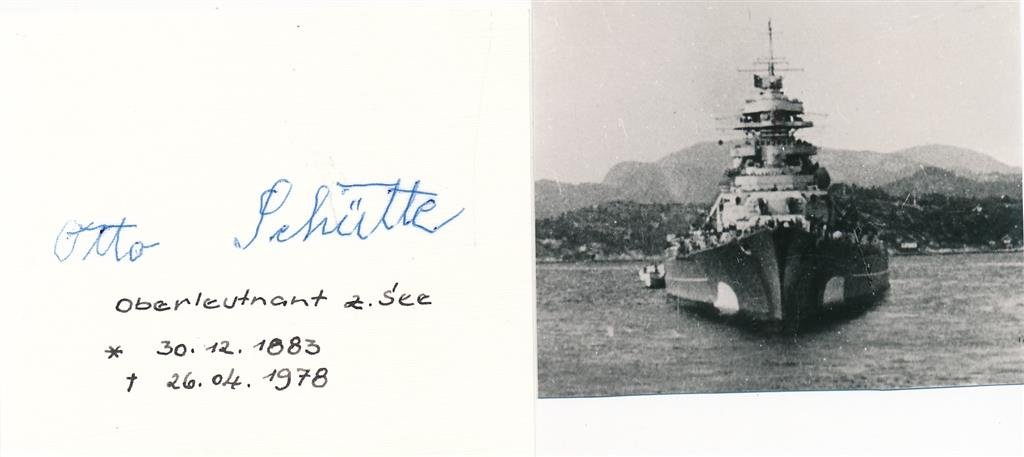 Otto Schütte
Oberleutnant z. See
* 30.12.1883
† 26.04.1978